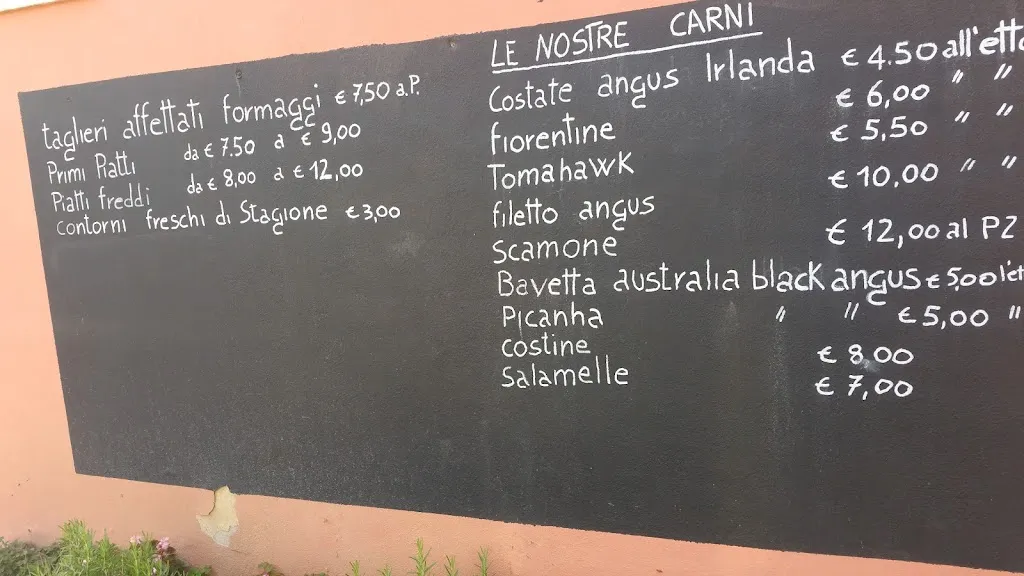 taglieri affettati formaggi € 7,50 a.P.
Primi Piatti da € 7.50 a € 9,00
Piatti freddi da € 8,00 a € 12,00
contorni freschi di Stagione € 3,00
LE NOSTRE CARNI
Costate angus Irlanda € 4.50 all'etto
fiorentine € 6,00 " "
Tomahawk € 5,50 " "
filetto angus € 10,00 " "
Scamone € 12,00 al PZ
Bavetta australia black angus € 5,00 l'et
Picanha " " € 5,00 "
costine € 8,00
Salamelle € 7,00